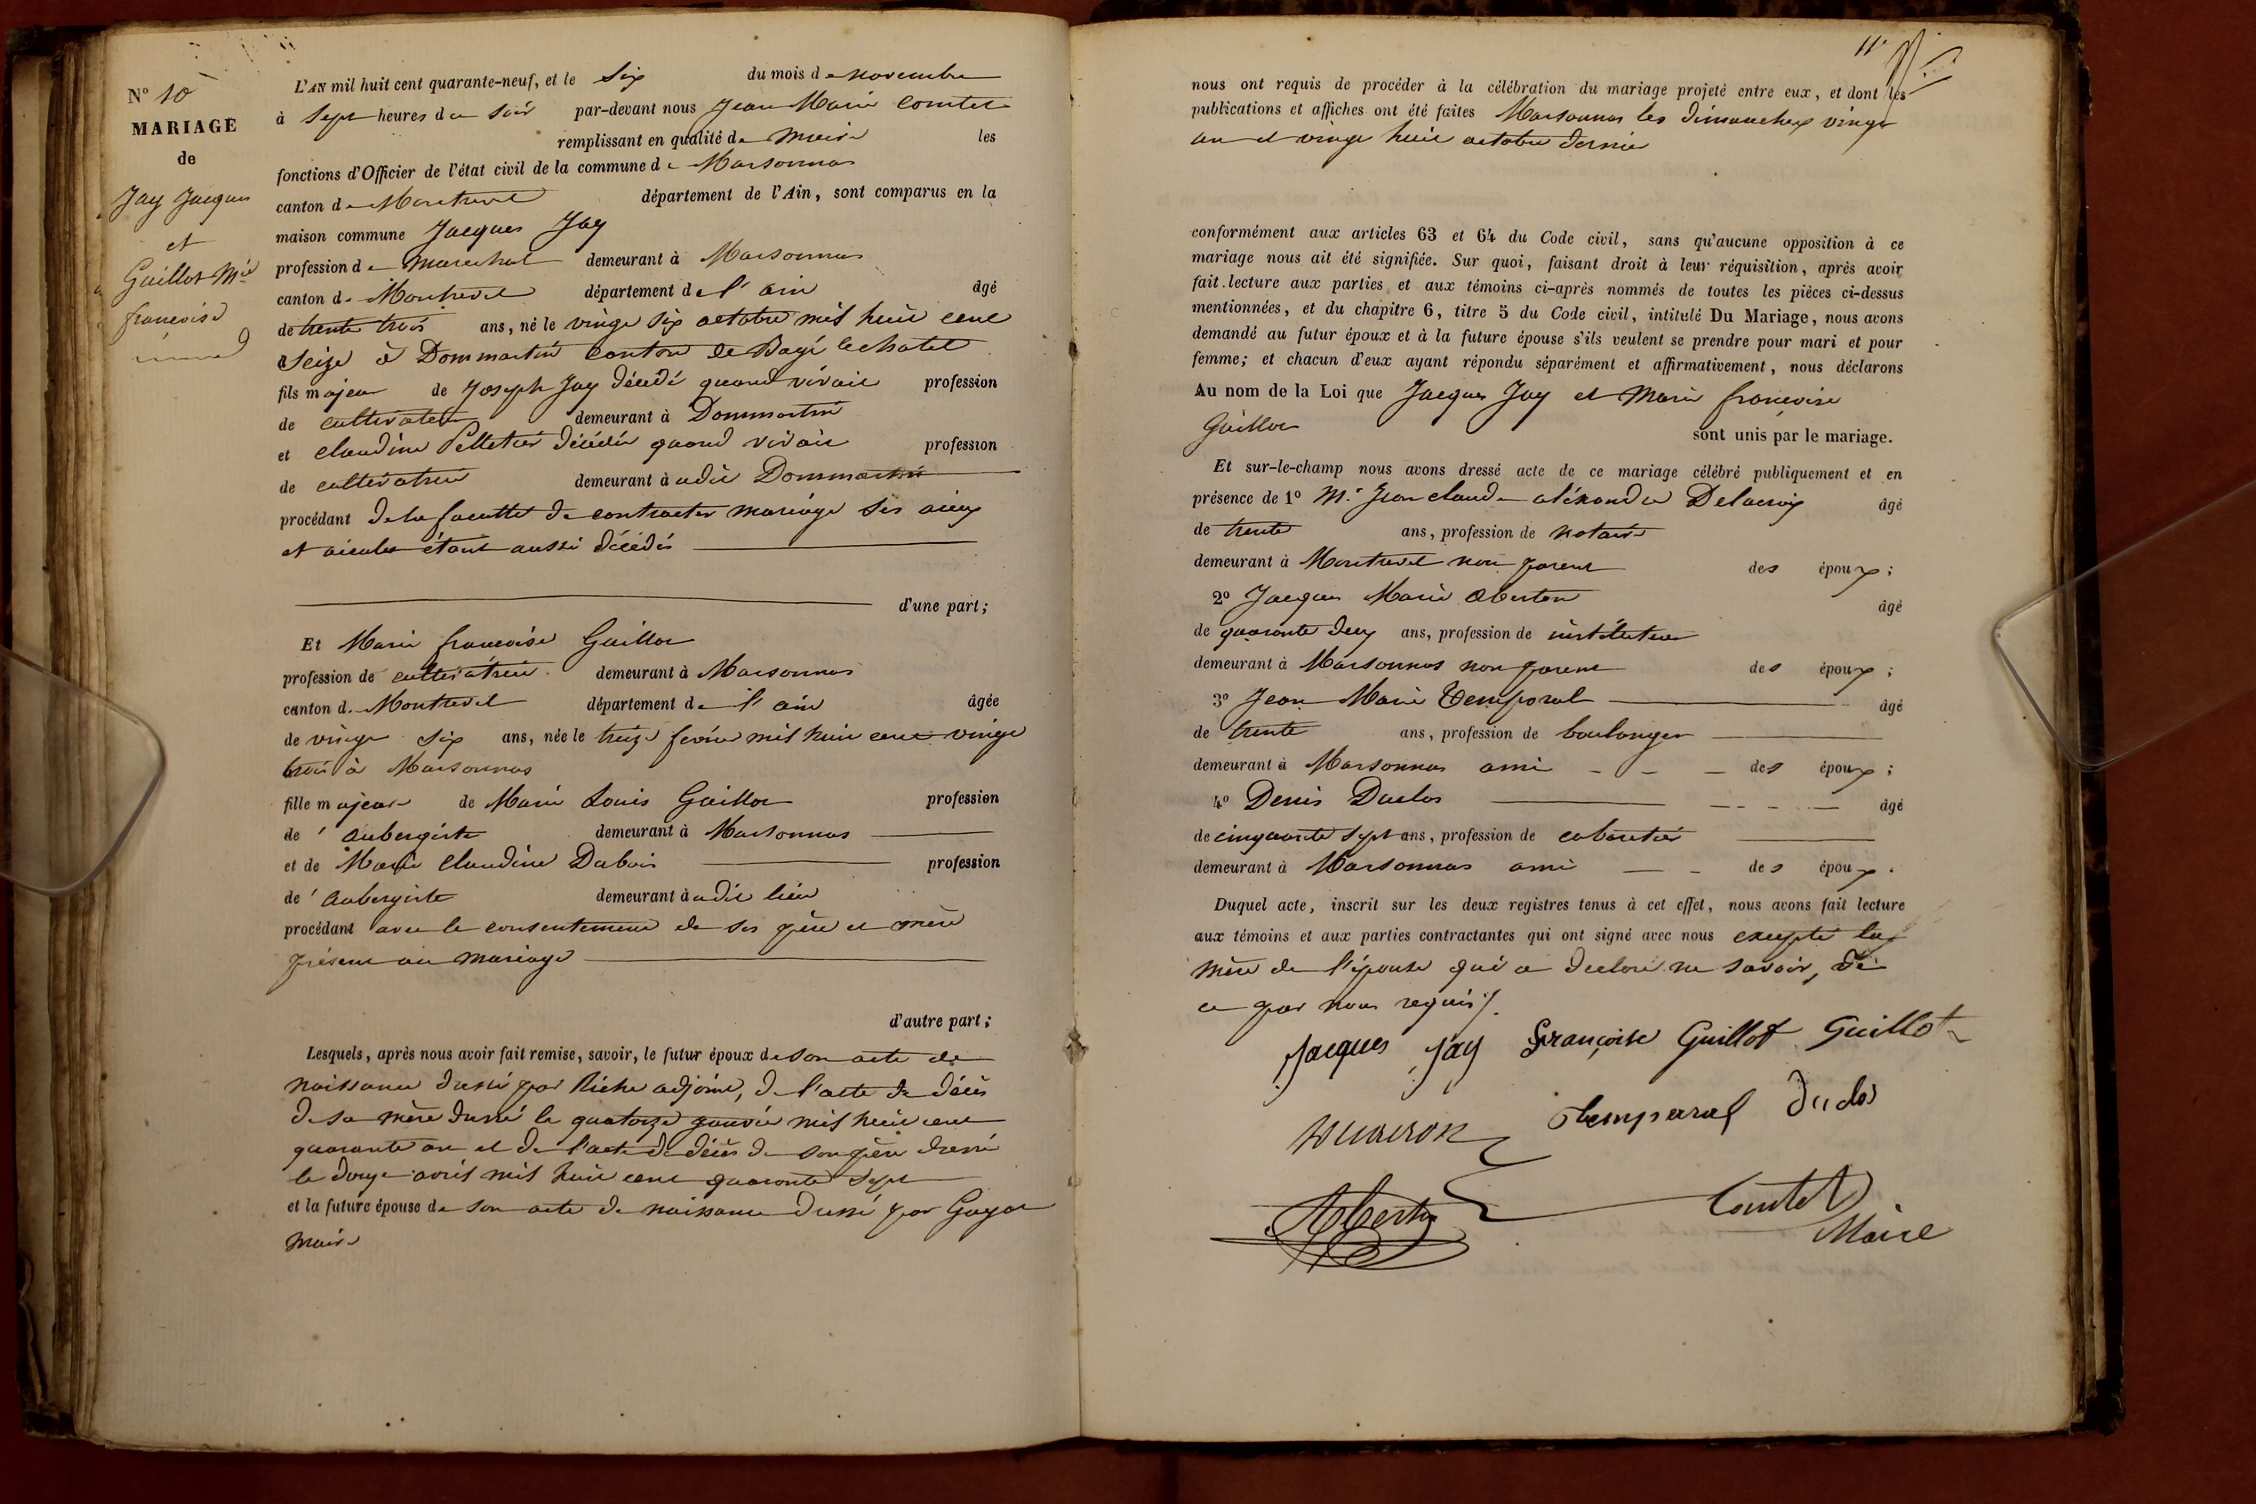 N° 10
MARIAGE
de
Jay Jacques
et
Guillot Mie
francoise
L'AN mil huit cent quarante-neuf, et le Six du mois de novembre
à Sept heures du Soir par-devant nous Jean Marie Comtet
remplissant en qualité de Maire les
fonctions d'Officier de l'état civil de la commune de Marsonnas
canton de Montrevel département de l'Ain, sont comparus en la
maison commune Jacques Jay
profession de marechal demeurant à Marsonnas
canton de Montrevel département de l'ain âgé
de trente trois ans, né le vingt six octobre mil huit cent
Seize à Dommartin Canton de Bagé le chatel
fils majeur de Joseph Jay décédé quand vivait profession
de cultivateur demeurant à Dommartin
et claudine Pelletier décédée quand vivait profession
de cultivatrice demeurant à udit Dommartin
procédant de la faculté de contracter mariage Ses aieux
et aieules étant aussi décédés
d'une part;
Et Marie francoise Guillot
profession de cultivatrice demeurant à Marsonnas
canton de Montrevel département de l'ain âgée
de vingt six ans, née le treize fevrier mil huit cent vingt
trois à Marsonnas
fille majeure de Marie Louis Guillot profession
de' Aubergiste demeurant à Marsonnas
et de Marie Claudine Dubois profession
de' Aubergiste demeurant à udit lieu
procédant avec le consentement de ses père et mère
présent au mariage
d'autre part;
Lesquels, après nous avoir fait remise, savoir, le futur époux de son acte de
naissance dressé par Riche adjoint, de l'acte de décès
de sa mère dressé le quatorze janvier mil huit cent
quarante un et de l'acte de décès de son père dressé
le douze avril mil huit cent quarante sept
et la future épouse de son acte de naissance dressé par Guyot
Maire
11e
nous ont requis de procéder à la célébration du mariage projeté entre eux, et dont les
publications et affiches ont été faites Marsonnas les dimanches vingt
un et vingt huit octobre dernier
conformément aux articles 63 et 64 du Code civil, sans qu'aucune opposition à ce
mariage nous ait été signifiée. Sur quoi, faisant droit à leur réquisition, après avoir
fait lecture aux parties et aux témoins ci-après nommés de toutes les pièces ci-dessus
mentionnées, et du chapitre 6, titre 5 du Code civil, intitulé Du Mariage, nous avons
demandé au futur époux et à la future épouse s'ils veulent se prendre pour mari et pour
femme; et chacun d'eux ayant répondu séparément et affirmativement, nous déclarons
Au nom de la Loi que Jacques Jay et Marie francoise
Guillot sont unis par le mariage.
Et sur-le-champ nous avons dressé acte de ce mariage célébré publiquement et en
présence de 1° Mr Jean claude alexandre Delacroix âgé
de trente ans, profession de notaire
demeurant à Montrevel non parent des époux;
2° Jacques Marie Oberton âgé
de quarante deux ans, profession de instituteur
demeurant à Marsonnas non parent des époux;
3° Jean Marie Temporal âgé
de trente ans, profession de boulanger
demeurant à Marsonnas ami des époux;
4° Denis Duclos âgé
de cinquante sept ans, profession de cabaretier
demeurant à Marsonnas ami des époux.
Duquel acte, inscrit sur les deux registres tenus à cet effet, nous avons fait lecture
aux témoins et aux parties contractantes qui ont signé avec nous excepté la
mère de l'épouse qui a declaré ne savoir, de
ce par nous requis
Jacques Jay Françoise Guillot Guillot
Temporal Duclos
Comtet
Maire